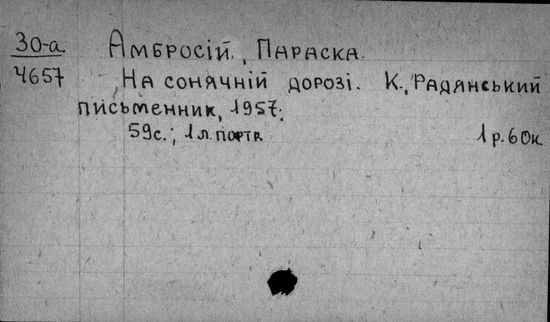 30-а Амбросій, Параска.
4657 На сонячній дорозі. К., Радянський
письменник, 1957.
59с.; 1 л. портр. 1 р. 60к